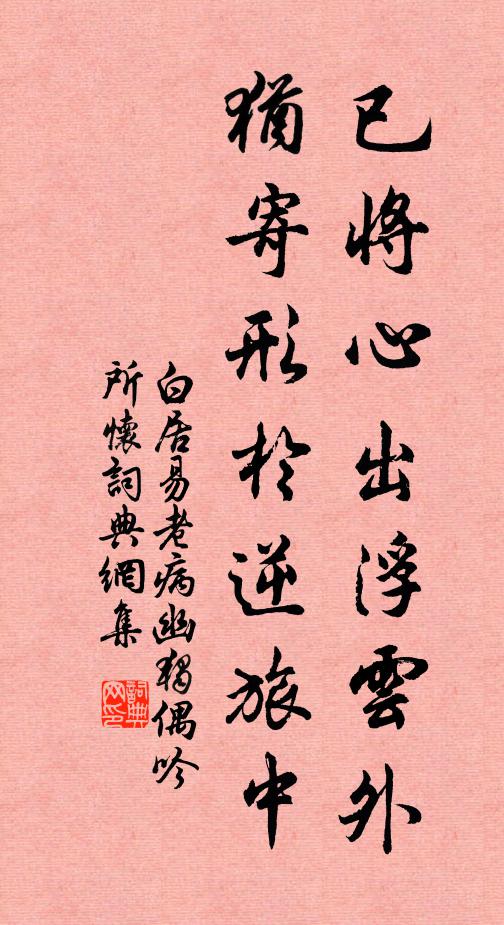 已將心出浮雲外
猶寄形於逆旅中
白居易老病幽獨偶吟
所懷詞典網集
詞典
网印